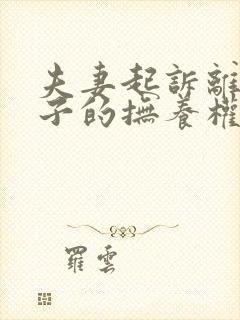 夫妻起訴離
子的撫養權
羅雲